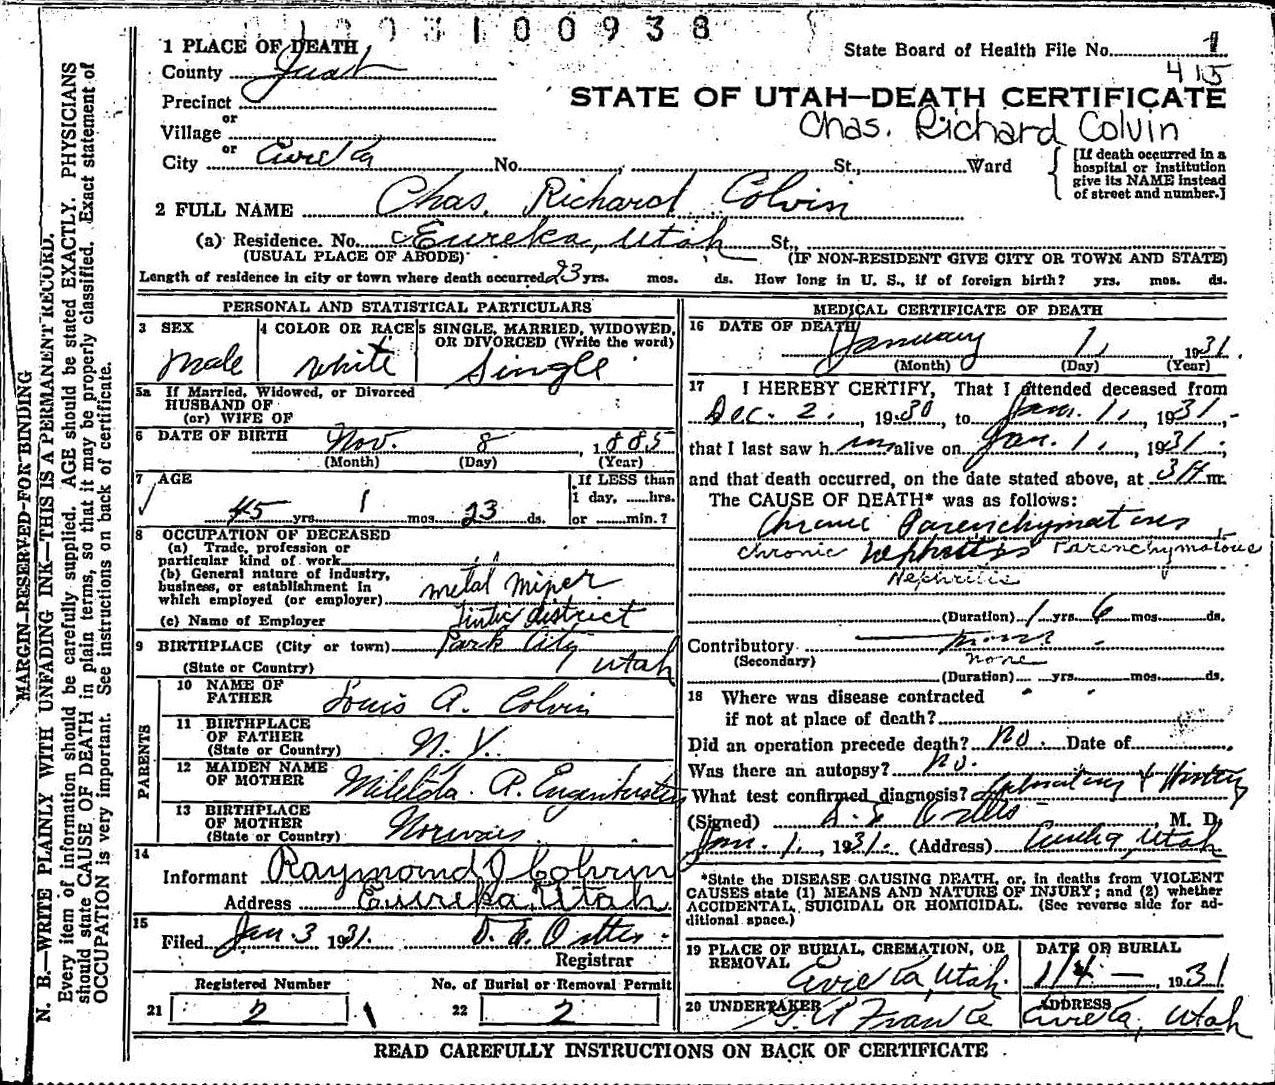 1 2 0 3 1 0 0 9 3 8
1 PLACE OF DEATH
State Board of Health File No. 1
County Juab
415
Precinct
STATE OF UTAH—DEATH CERTIFICATE
or
Village
Chas. Richard Colvin
or
City Eureka No. St., Ward
[If death occurred in a hospital or institution give its NAME instead of street and number.]
2 FULL NAME Chas. Richard Colvin
(a) Residence. No. Eureka, Utah St.,
(USUAL PLACE OF ABODE) (IF NON-RESIDENT GIVE CITY OR TOWN AND STATE)
Length of residence in city or town where death occurred 23 yrs. mos. ds. How long in U. S., if of foreign birth? yrs. mos. ds.
PERSONAL AND STATISTICAL PARTICULARS
3 SEX
Male
4 COLOR OR RACE
White
5 SINGLE, MARRIED, WIDOWED, OR DIVORCED (Write the word)
Single
5a If Married, Widowed, or Divorced
HUSBAND OF
(or) WIFE OF
6 DATE OF BIRTH Nov. 8, 1885
(Month) (Day) (Year)
7 AGE
45 yrs. 1 mos. 23 ds.
If LESS than
1 day, hrs.
or min.?
8 OCCUPATION OF DECEASED
(a) Trade, profession or
particular kind of work
(b) General nature of industry,
business, or establishment in
which employed (or employer) metal miner
(c) Name of Employer Tintic district
9 BIRTHPLACE (City or town) Park City
(State or Country) Utah
PARENTS
10 NAME OF FATHER Louis A. Colvin
11 BIRTHPLACE OF FATHER
(State or Country) N. Y.
12 MAIDEN NAME OF MOTHER
13 BIRTHPLACE OF MOTHER
(State or Country)
14
Informant Raymond J Colvin
Address Eureka, Utah
15
Filed Jan. 3 1931.
Registrar
Registered Number
21 2
No. of Burial or Removal Permit
22 2
MEDICAL CERTIFICATE OF DEATH
16 DATE OF DEATH
January 1, 1931.
(Month) (Day) (Year)
17 I HEREBY CERTIFY, That I attended deceased from
Dec. 2, 1930 to Jan. 1, 1931,
that I last saw him alive on Jan. 1, 1931;
and that death occurred, on the date stated above, at 3 A m.
The CAUSE OF DEATH* was as follows:
Chronic Parenchymatous
Chronic Nephritis Parenchymatous
Nephritis
(Duration) 1 yrs. 6 mos. ds.
Contributory none
(Secondary) none
(Duration) yrs. mos. ds.
18 Where was disease contracted
if not at place of death?
Did an operation precede death? no. Date of
Was there an autopsy? no.
What test confirmed diagnosis? Laboratory & History
(Signed) , M. D.
Jan. 1, 1931. (Address) Eureka, Utah
*State the DISEASE CAUSING DEATH, or, in deaths from VIOLENT
CAUSES state (1) MEANS AND NATURE OF INJURY; and (2) whether
ACCIDENTAL, SUICIDAL OR HOMICIDAL. (See reverse side for ad-
ditional space.)
19 PLACE OF BURIAL, CREMATION, OR REMOVAL
Eureka, Utah.
DATE OF BURIAL
1/4 — 1931
20 UNDERTAKER
ADDRESS
Eureka, Utah
READ CAREFULLY INSTRUCTIONS ON BACK OF CERTIFICATE
MARGIN RESERVED FOR BINDING
N. B.—WRITE PLAINLY WITH UNFADING INK—THIS IS A PERMANENT RECORD.
Every item of information should be carefully supplied. AGE should be stated EXACTLY. PHYSICIANS
should state CAUSE OF DEATH in plain terms, so that it may be properly classified. Exact statement of
OCCUPATION is very important. See instructions on back of certificate.